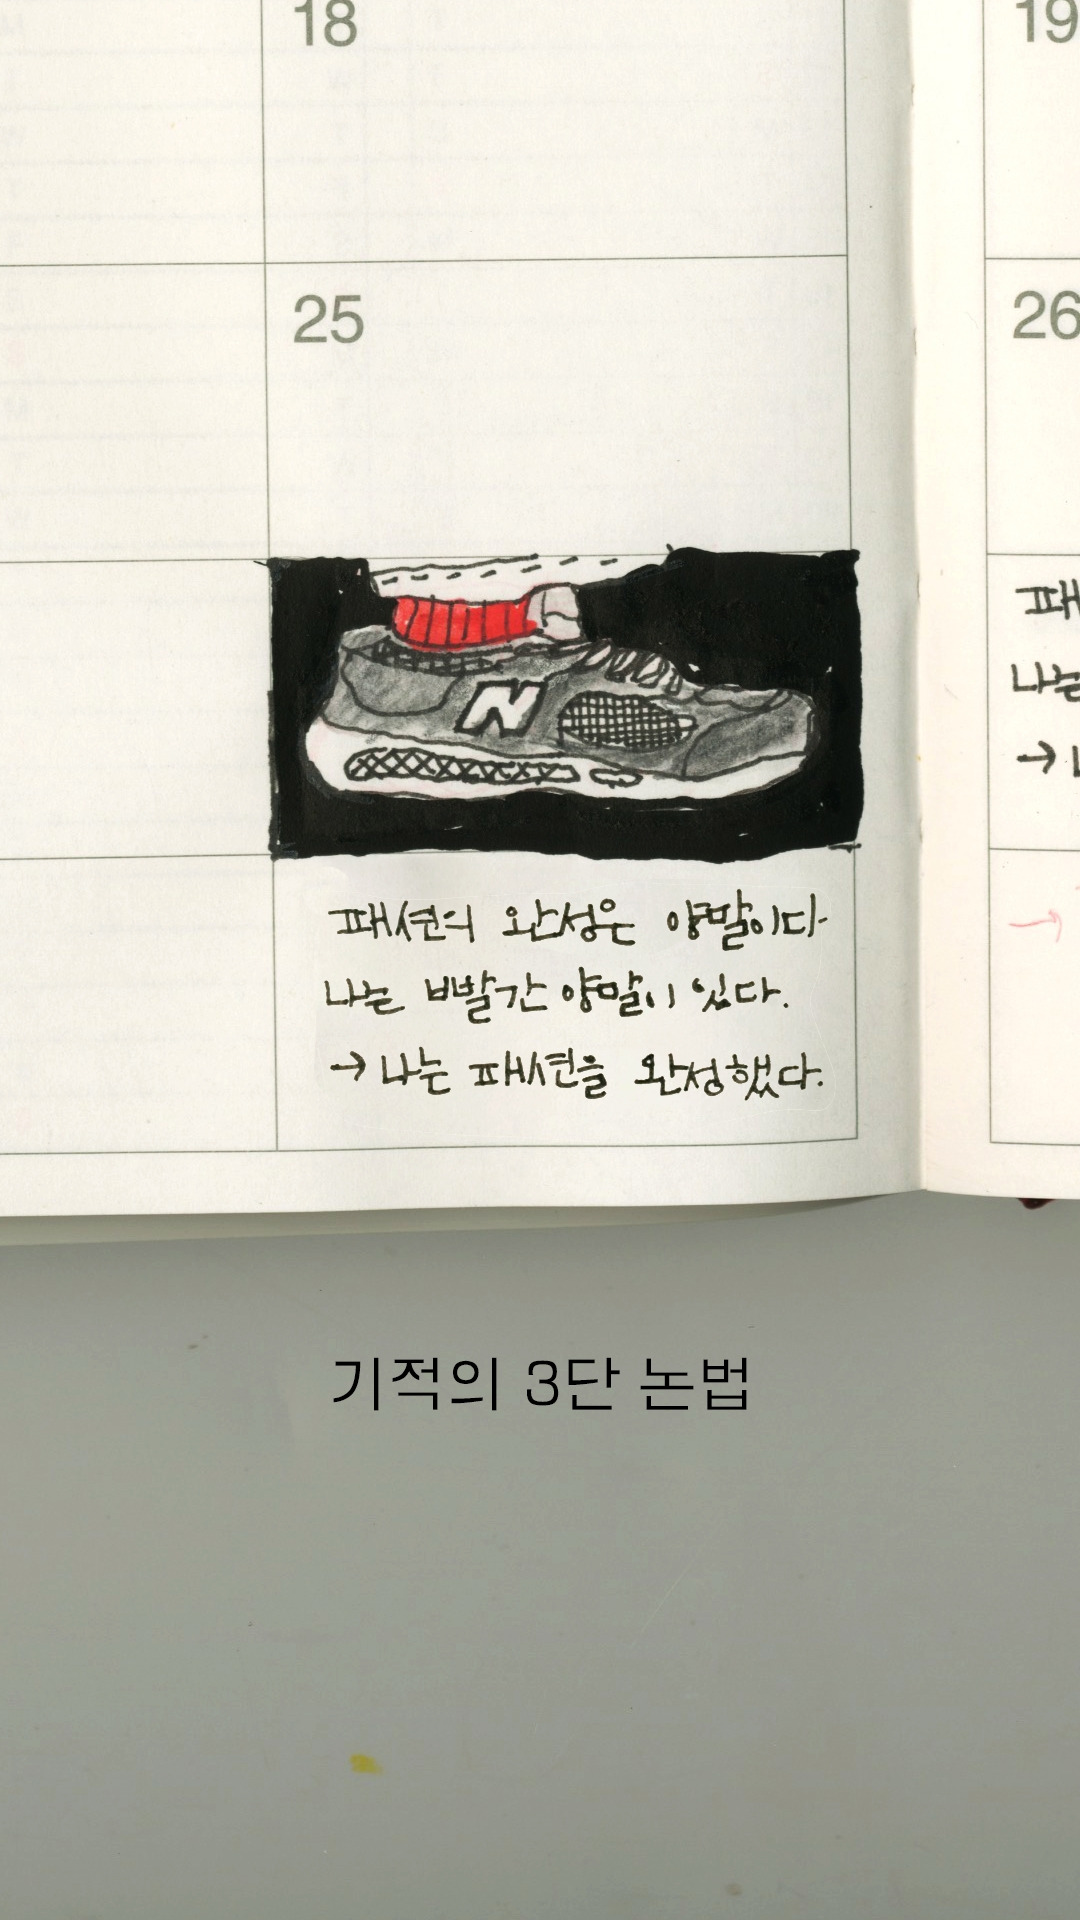 18
19
25
26
N
패
나는
→
패션의 완성은 양말이다
나는 빨간 양말이 있다.
→ 나는 패션을 완성했다.
→
기적의 3단 논법